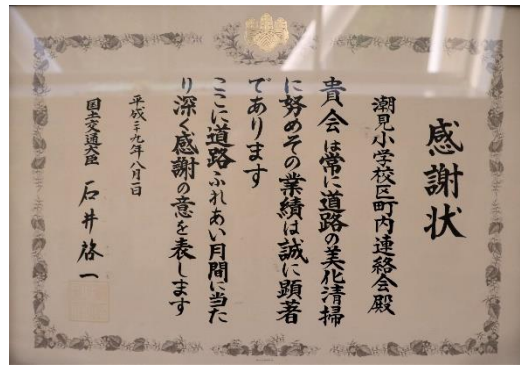 感謝状
潮見小学校区町内連絡会殿
貴会は常に道路の美化清掃
に努めその業績は誠に顕著
であります
ここに道路ふれあい月間に当た
り深く感謝の意を表します
平成二十九年八月一日
国土交通大臣 石井啓一